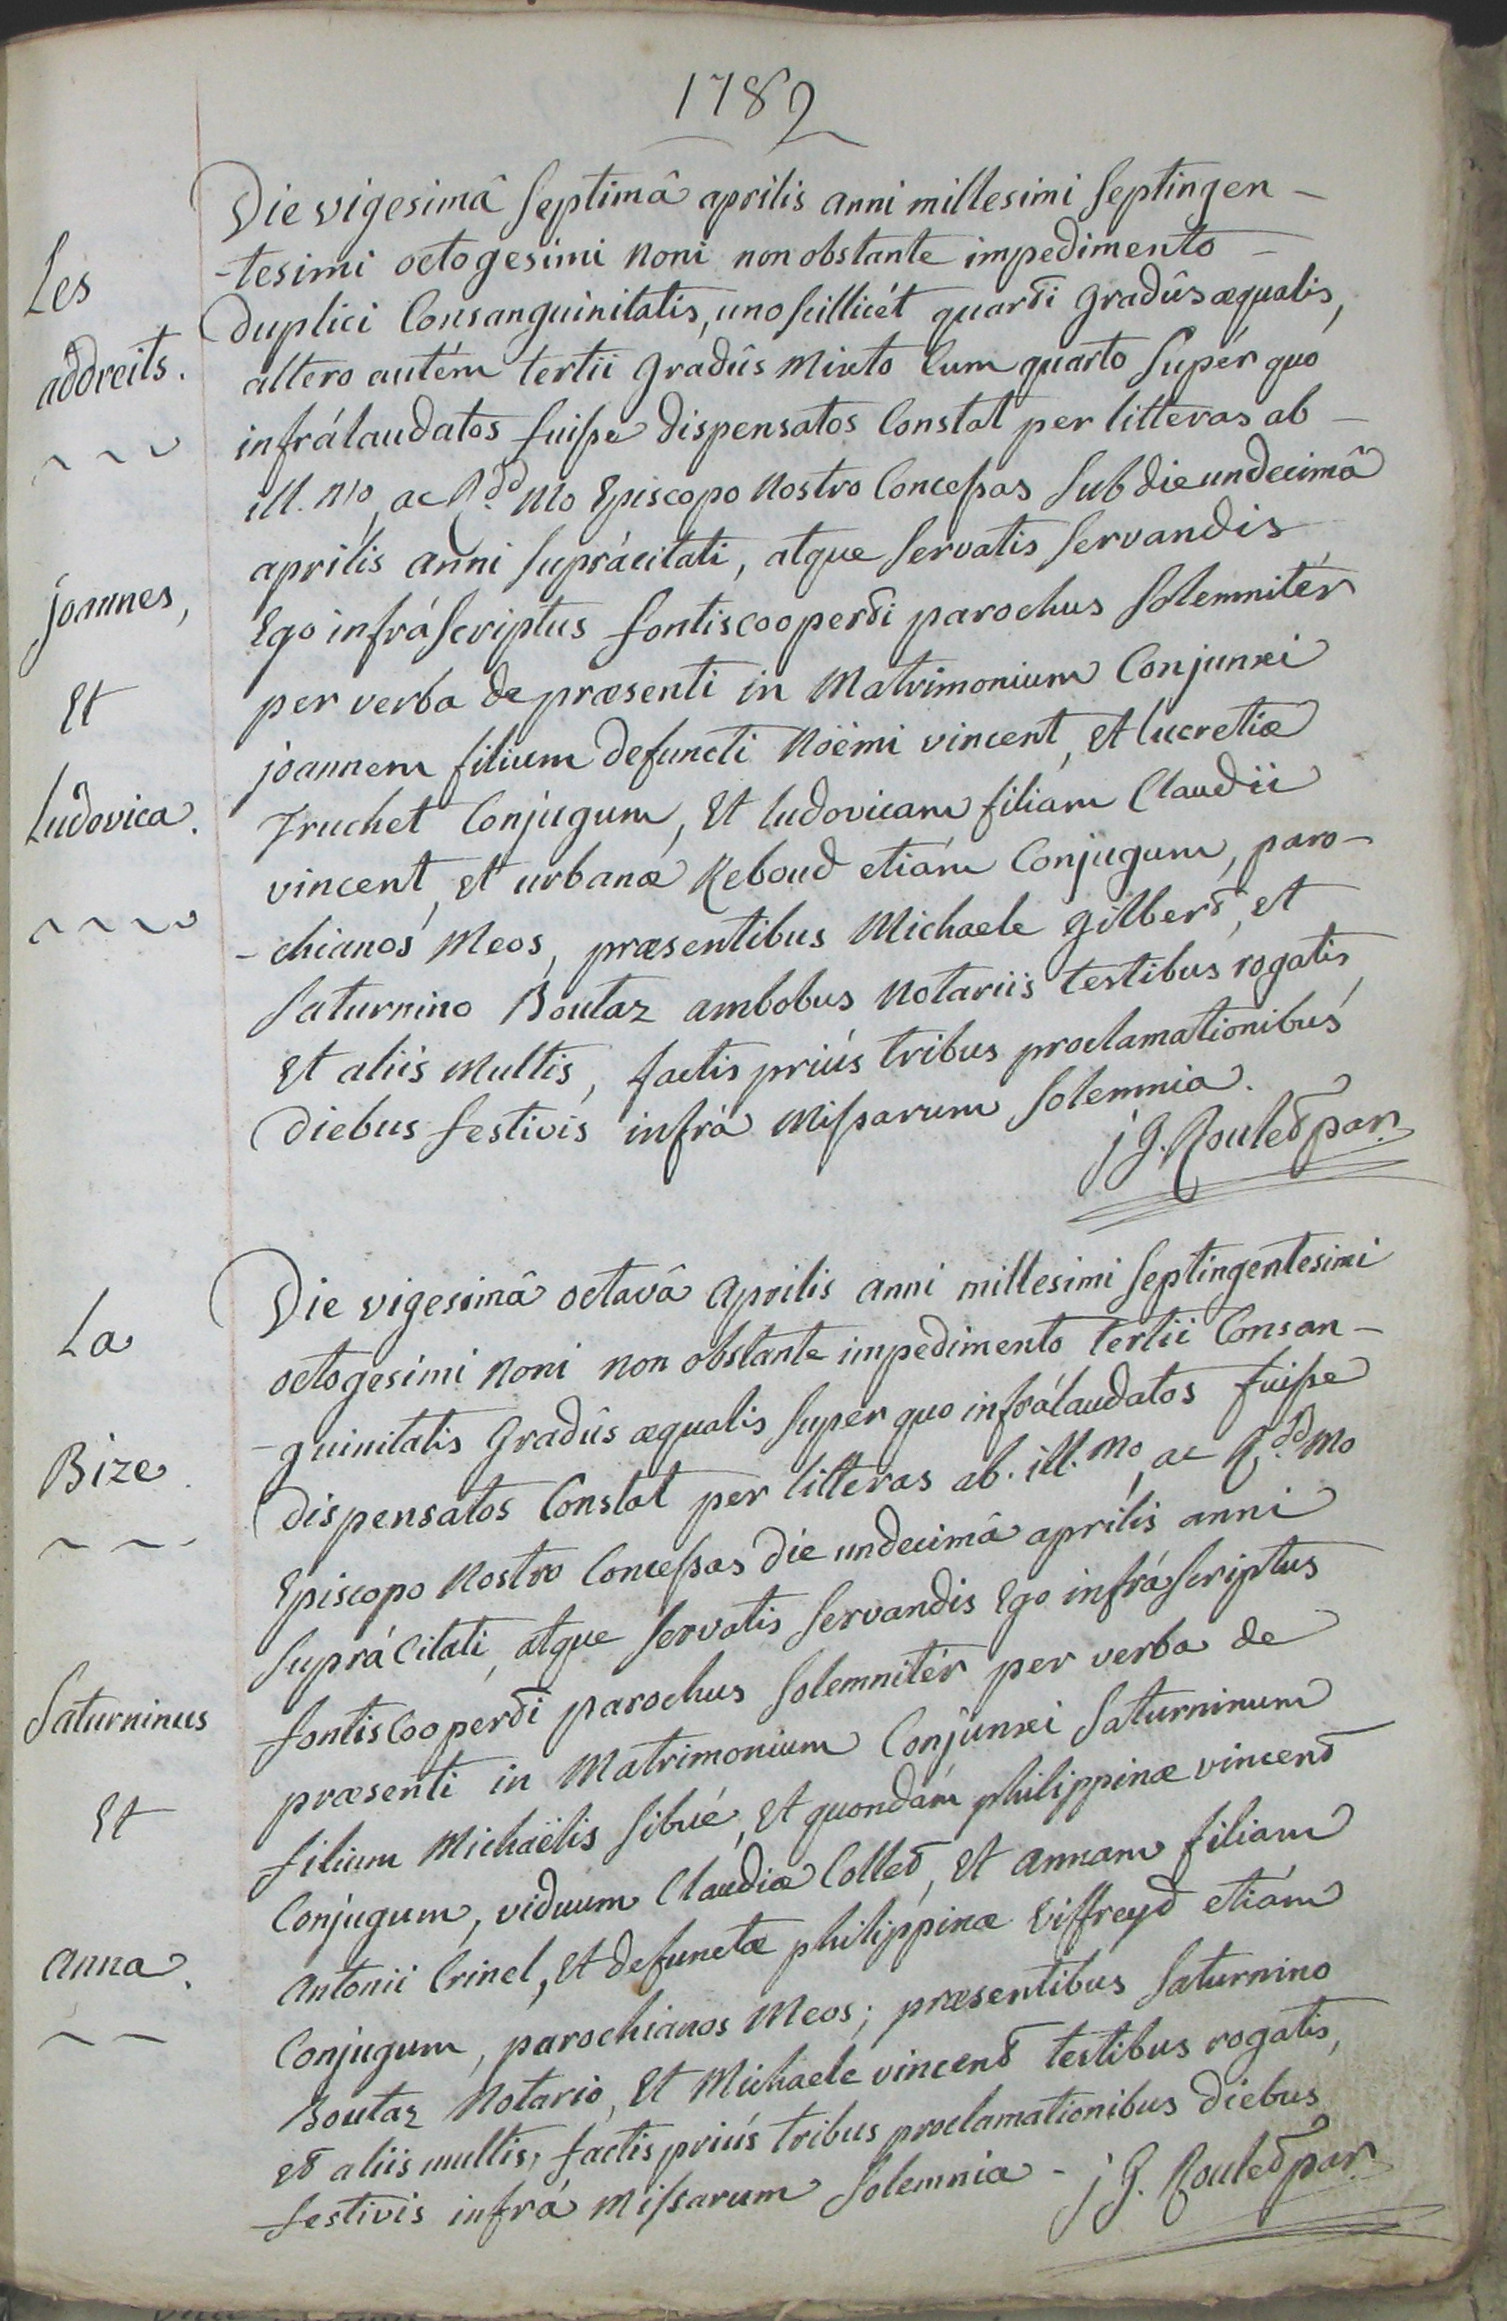 1789
Les
addreits.
joannes,
Et
Ludovica.
Die vigesimâ septimâ aprilis anni millesimi septingen-
-tesimi octogesimi noni non obstante impedimento -
duplici Consanguinitatis, uno scillicét quarti gradûs æqualis,
altero autém tertii gradûs mixto Cum quarto supér quo
infrálaudatos fuisse dispensatos Constat per litteras ab -
ill.mo, ac R.ddmo Episcopo nostro Concessas sub die undecimâ
aprilis anni suprácitati, atque servatis servandis
Ego infráscriptus fontiscooperti parochus solemnitér
per verba de præsenti in Matrimonium Conjunxi
joannem filium defuncti Noëmi vincent, Et lucretiæ
Truchet Conjugum, Et ludovicam filiam Claudii
vincent, et urbanæ Reboud etiám Conjugum, paro-
-chianos Meos, præsentibus Michaele gilbert, et
saturnino Boutaz ambobus Notariis testibus rogatis,
Et aliis Multis, factis priús tribus proclamationibus
diebus festivis infrá Missarum solemnia.
j G. Roulet par.
La
Bize
Saturninus
Et
anna.
Die vigesimâ octavâ aprilis anni millesimi septingentesimi
octogesimi noni non obstante impedimento tertii Consan-
-guinitatis gradûs æqualis super quo infrálaudatos fuisse
dispensatos Constat per litteras ab. ill.mo, ac R.ddmo
Episcopo Nostro Concessas die undecimâ aprilis anni
suprácitati, atque servatis servandis Ego infráscriptus
fontisCooperti parochus solemnitér per verba de
præsenti in Matrimonium Conjunxi saturninum
filium Michaëlis sibué, Et quondám philippinæ vincent
Conjugum, viduum Claudiæ Collet, Et annam filiam
antonii Crinel, Et defunctæ philippinæ Eiffreyd etiám
Conjugum, parochianos Meos; præsentibus saturnino
Boutaz Notario, Et Michaele vincent testibus rogatis,
et aliis multis, factis priús tribus proclamationibus diebus
festivis infrá Missarum solemnia - j G. Roulet par.